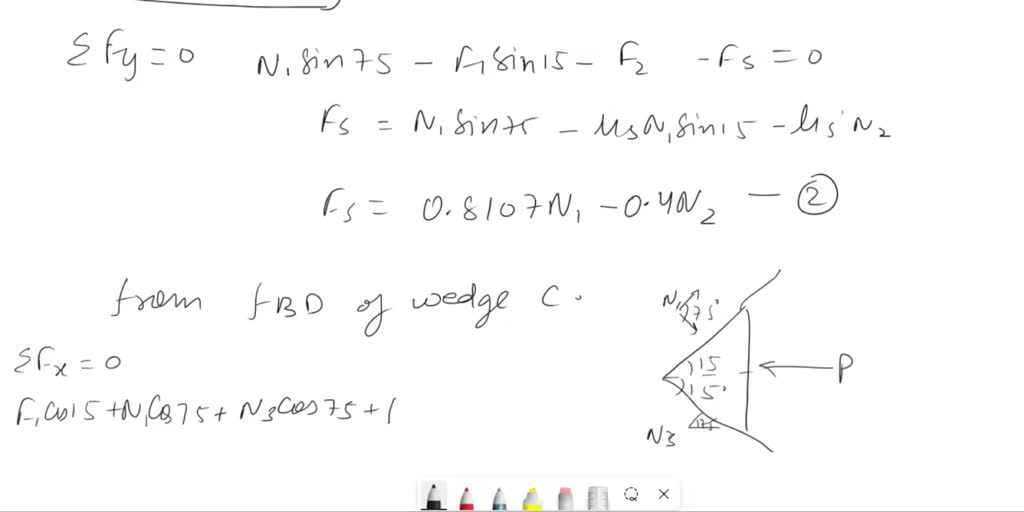 ΣFy = 0 N₁ sin75 - F₁ sin15 - F₂ - Fs = 0
Fs = N₁ sin75 - μsN₁ sin15 - μs N₂
Fs = 0.8107N₁ - 0.4N₂ — ②
from FBD of wedge C.
ΣFx = 0
F₁ cos15 + N₁ Cos75 + N3 Cos75 + (
N₁ 75°
15
15°
P
N3 75